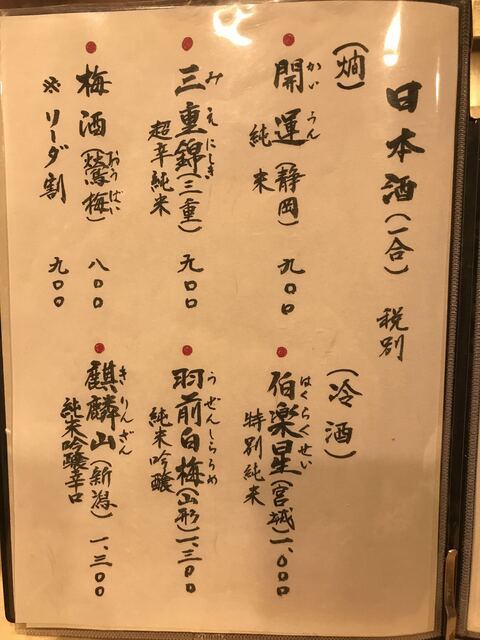 日本酒(一合) 税別
(燗)
かいうん
開運(静岡) 九〇〇
純米
みえにしき
三重錦(三重) 九〇〇
超辛純米
おうばい
梅酒(鶯梅) 八〇〇
※ソーダ割 九〇〇
(冷酒)
はくらくせい
伯楽星(宮城) 一、〇〇〇
特別純米
うぜんしらうめ
羽前白梅(山形) 一、三〇〇
純米吟醸
きりんざん
麒麟山(新潟) 一、三〇〇
純米吟醸辛口